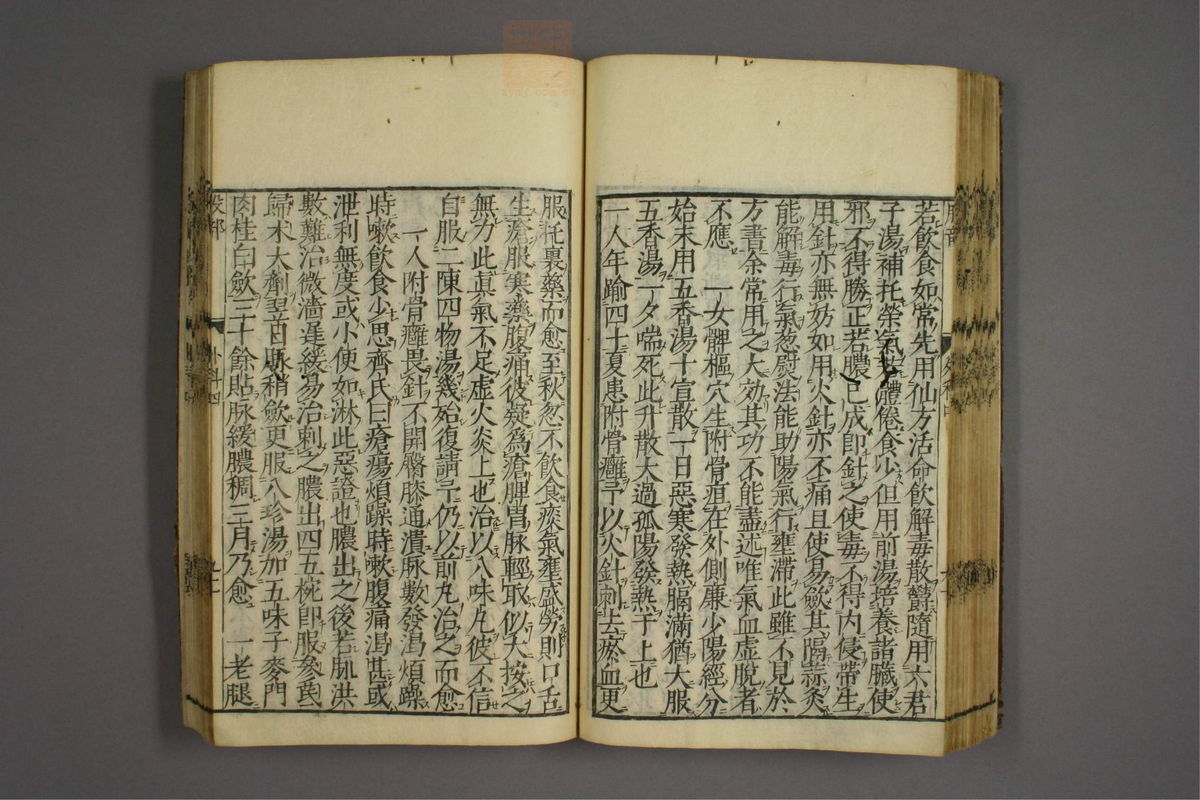 若飲食如常先用仙方活命飲解毒散欝隨用六君
子湯補托榮氣若體倦食少但用前湯培養諸臟使
邪不得勝正若膿已成即針之使毒不得内侵帶生
用針亦無妨如用火針亦不痛且使易斂其隔蒜灸
能解毒行氣葱熨法能助陽氣行壅滯此雖不見於
方書余常用之大効其功不能盡述唯氣血虛脫者
不應　一女髀樞穴生附骨疽在外側廉少陽經分
始末用五香湯十宣散一日惡寒發熱膈滿猶大服
五香湯一夕喘死此升散大過孤陽發熱于上也
一人年踰四十夏患附骨癰予以火針刺去瘀血更
服托裏藥而愈至秋忽不飲食痰氣壅盛勞則口舌
生瘡服寒藥腹痛彼疑爲瘡脾胃脉輕取似大按之
無力此眞氣不足虛火炎上也治以八味丸彼不信
自服二陳四物湯幾殆復請予仍以前丸治之而愈
一人附骨癰畏針不開臀膝通潰脉數發渴煩躁
時嗽飲食少思齊氏曰瘡瘍煩躁時嗽腹痛渴甚或
泄利無度或小便如淋此惡證也膿出之後若脉洪
數難治微濇遲緩易治刺之膿出四五椀即服參芪
歸朮大劑翌日脉稍歛更服八珍湯加五味子麥門
肉桂白歛三十餘貼脉緩膿稠三月乃愈　一老腿
外科四